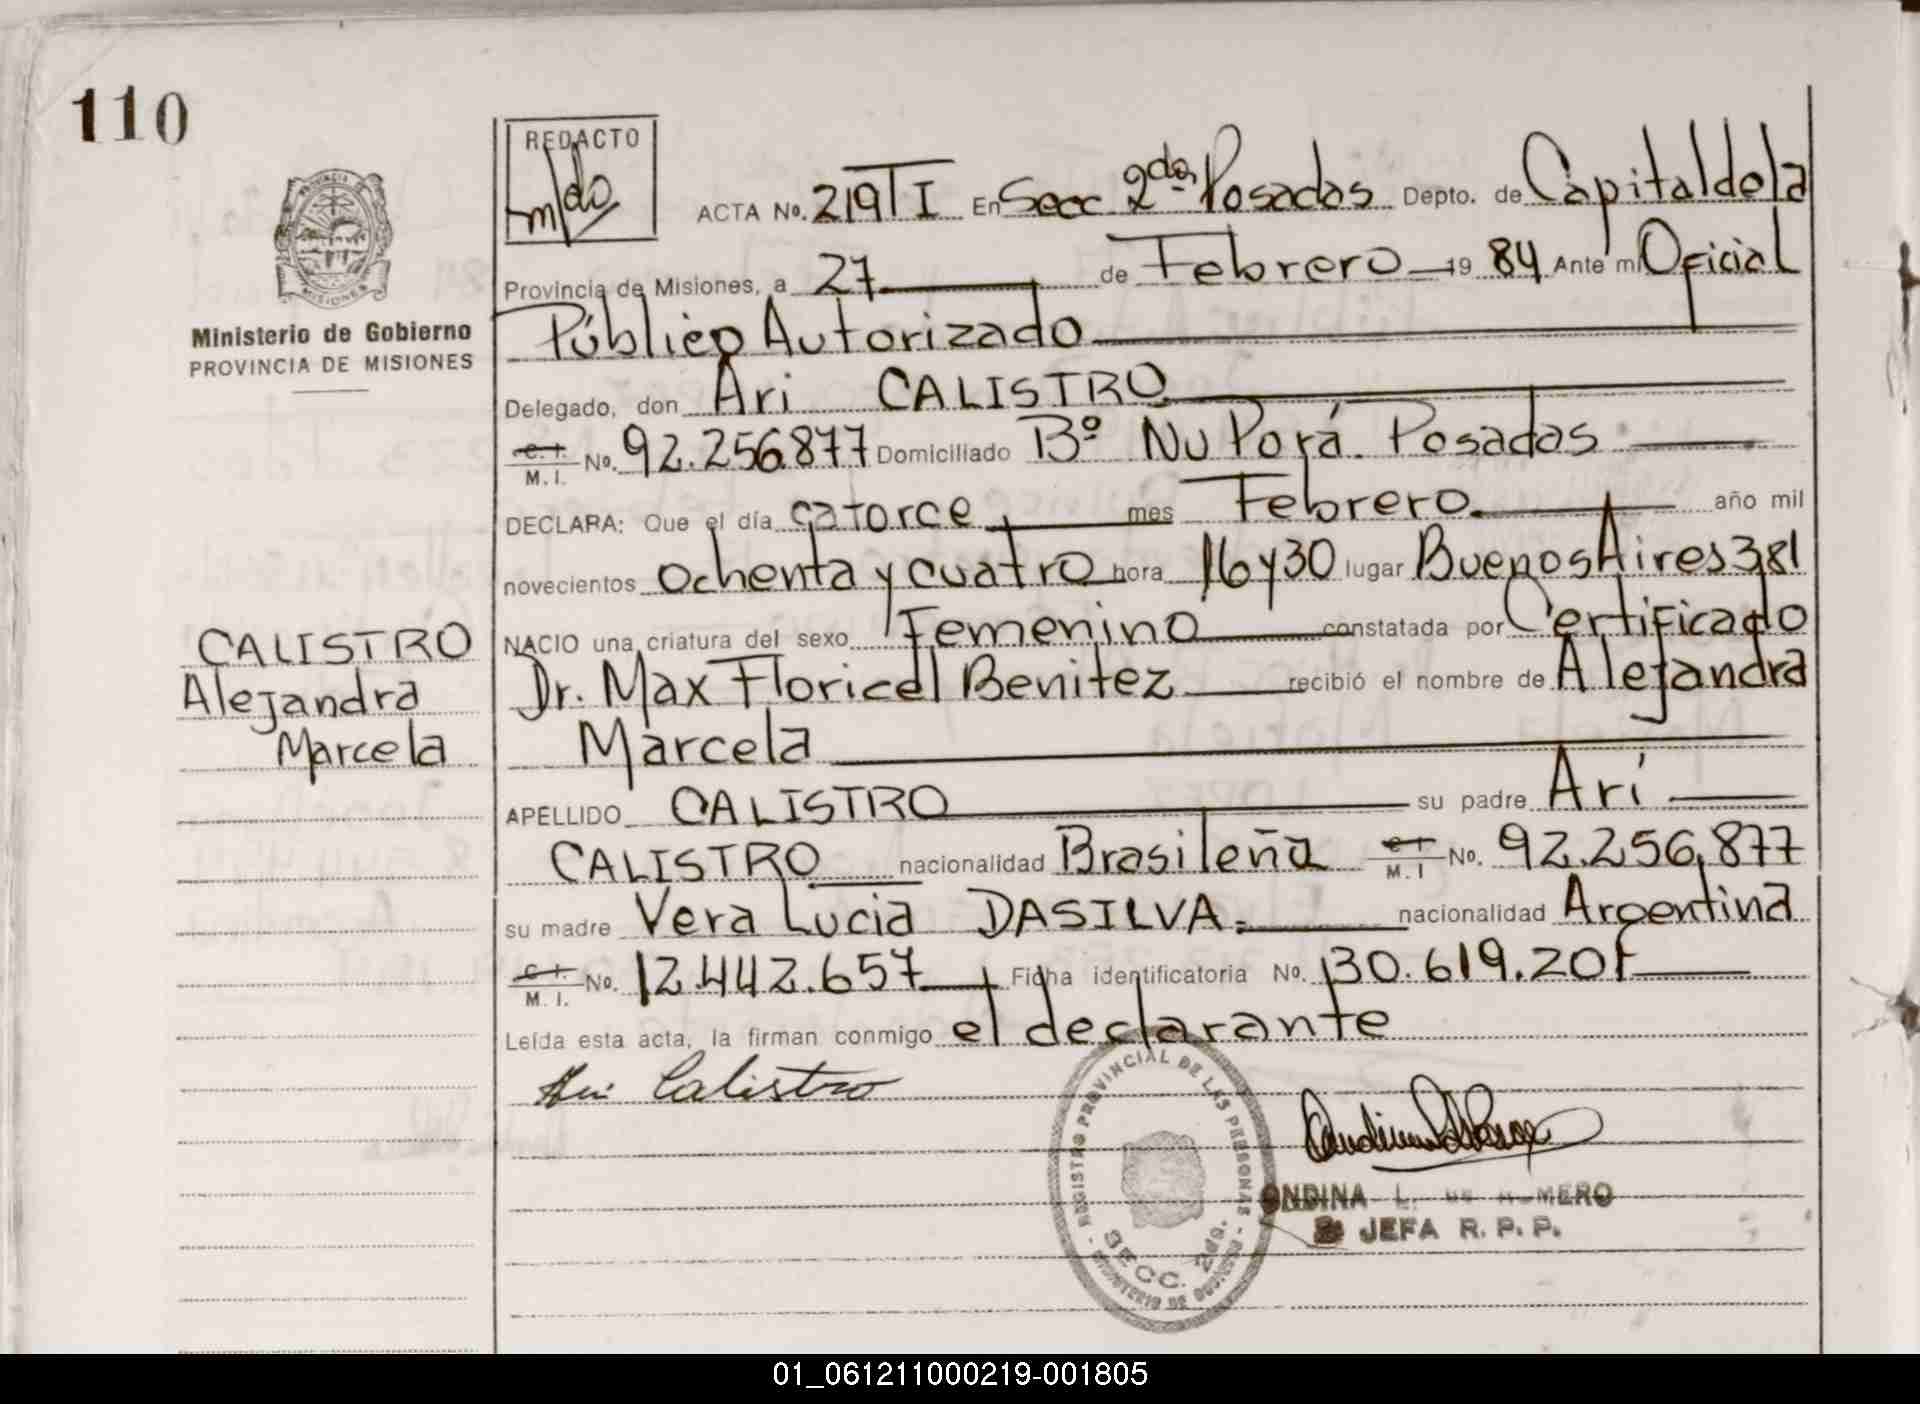 110
PROVINCIA DE
MISIONES
Ministerio de Gobierno
PROVINCIA DE MISIONES
CALISTRO
Alejandra
Marcela
REDACTO
ACTA No. 219 T I En Secc 2da Posadas Depto. de Capital de la
Provincia de Misiones, a 27 de Febrero 19 84 Ante mi Oficial
Público Autorizado
Delegado, don Ari CALISTRO
C. I. M. I. No. 92.256.877 Domiciliado Bº Nu Porá. Posadas
DECLARA: Que el día catorce mes Febrero año mil
novecientos ochenta y cuatro hora 16 y 30 lugar Buenos Aires 381
NACIO una criatura del sexo Femenino constatada por Certificado
Dr. Max Floricel Benitez recibió el nombre de Alejandra
Marcela
APELLIDO CALISTRO su padre Ari
CALISTRO nacionalidad Brasileña C I M. I No. 92.256.877
su madre Vera Lucia DASILVA nacionalidad Argentina
C I. M. I. No. 12.442.657 Ficha identificatoria No. 130.619.20F
Leída esta acta, la firman conmigo el declarante
Ari Calistro
REGISTRO PROVINCIAL DE LAS PERSONAS
SECC. 2da.
MINISTERIO DE GOBIERNO
ONDINA L. DE ROMERO
JEFA R. P. P.
01_061211000219-001805